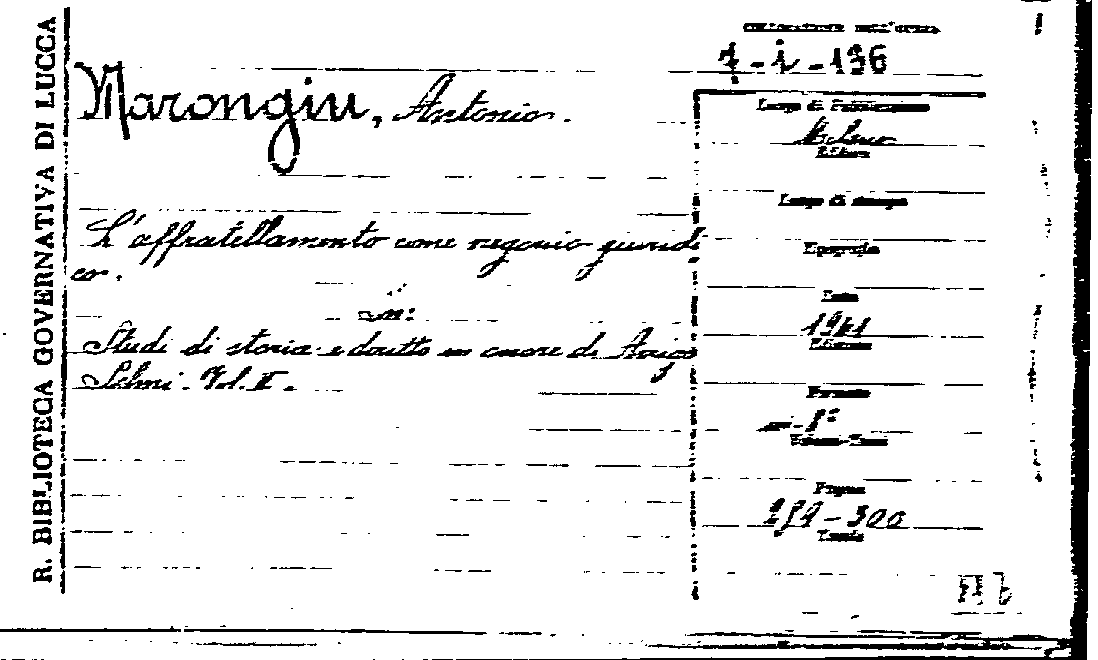 R. BIBLIOTECA GOVERNATIVA DI LUCCA
COLLOCAZIONE DELL'OPERA
7-i-136
Marongiu, Antonio.
Luogo di Pubblicazione
Milano
Editore
Luogo di stampa
L'affratellamento come negozio giuridi
co.
Tipografia
in:
Data
1941
Edizione
Studi di storia e diritto in onore di Arrigo
Solmi. Vol. II.
Formato
in-8°
Pagine
-300
Tavole